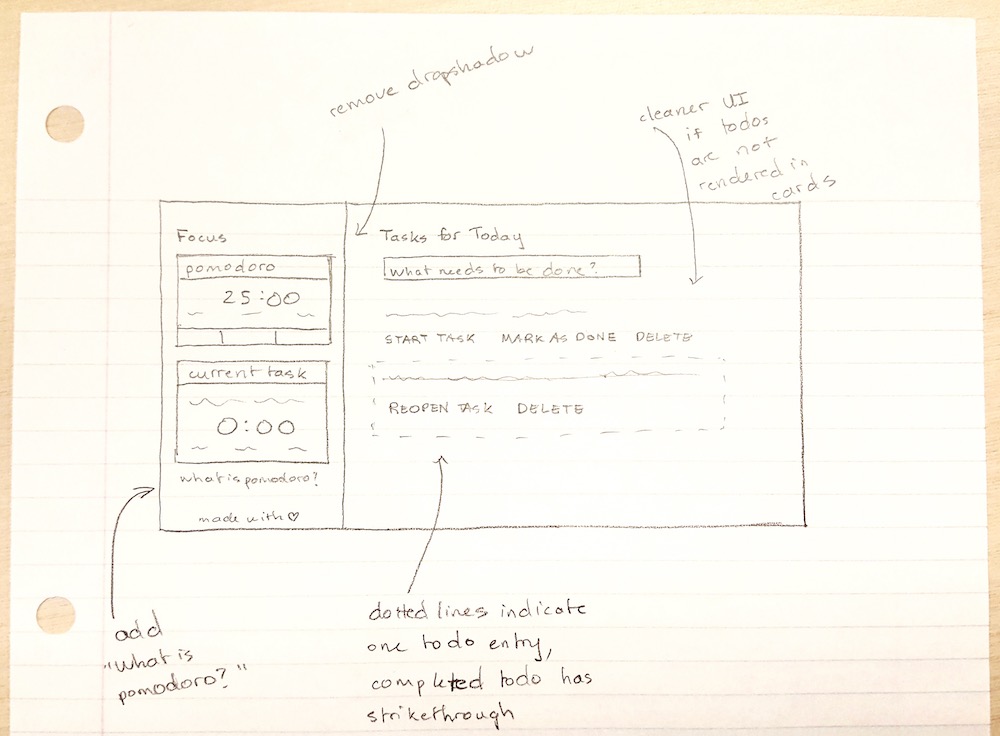 remove dropshadow
cleaner UI
if todos
are not
rendered in
cards
Focus
pomodoro
25:00
current task
0:00
what is pomodoro?
made with ♡
Tasks for Today
what needs to be done?
START TASK MARK AS DONE DELETE
REOPEN TASK DELETE
add
"What is
pomodoro?"
dotted lines indicate
one todo entry,
completed todo has
strikethrough